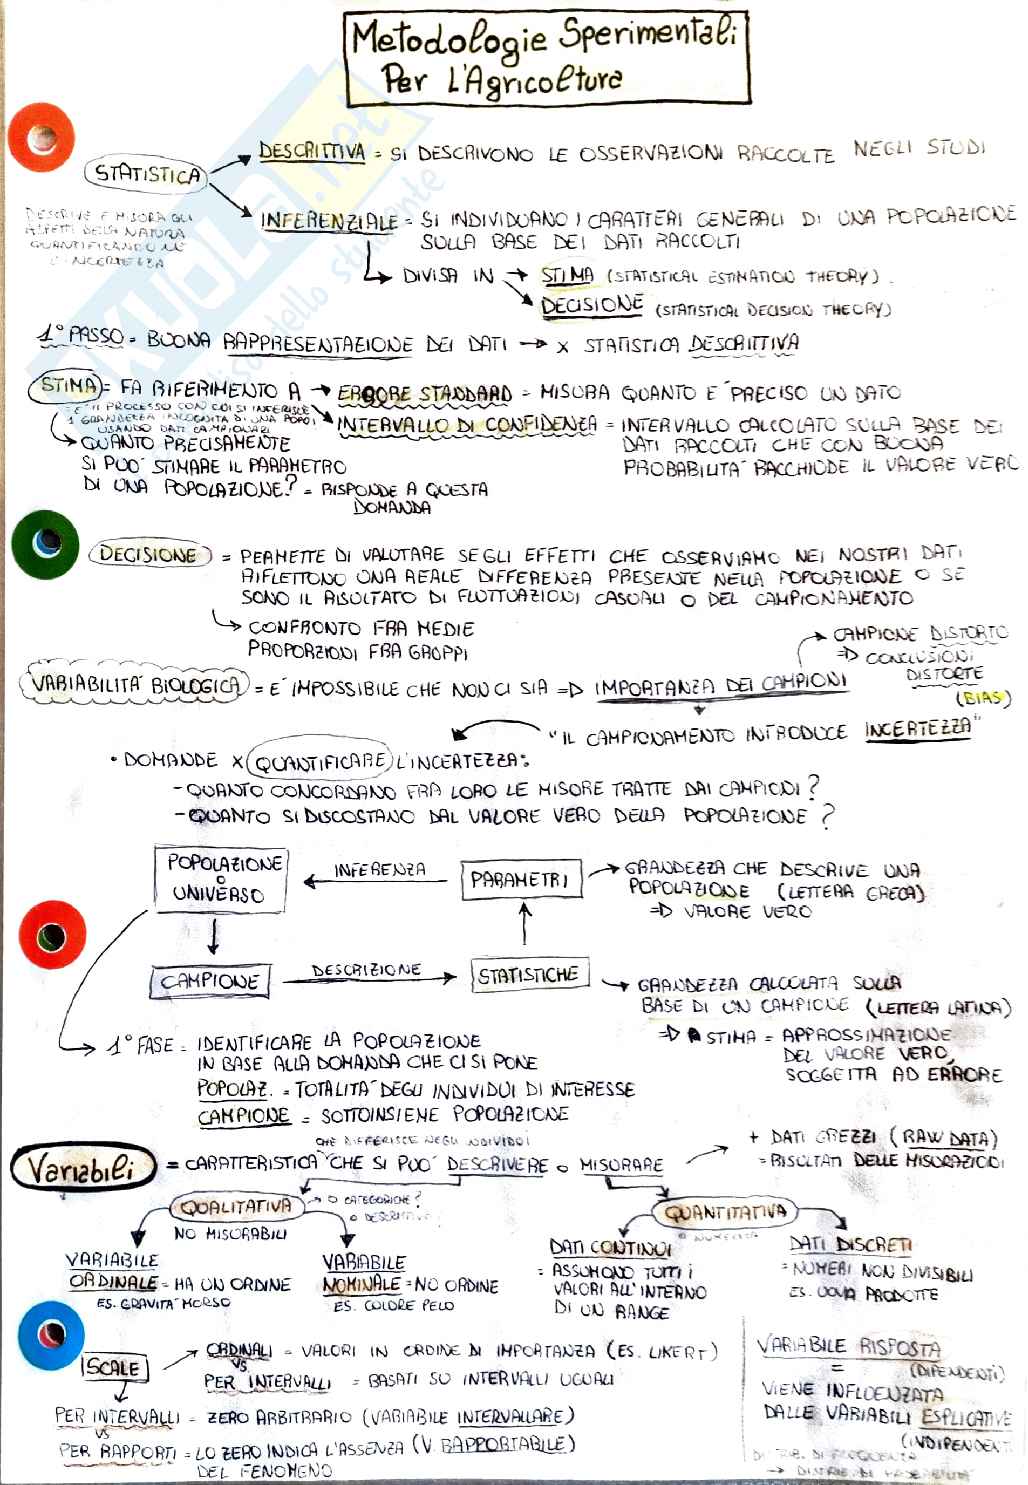 Metodologie Sperimentali
Per L'Agricoltura
STATISTICA
DESCRITTIVA = SI DESCRIVONO LE OSSERVAZIONI RACCOLTE NEGLI STUDI
DESCRIVE E MISURA GLI
ASPETTI DELLA NATURA
QUANTIFICANDO NE
L'INCERTEZZA
INFERENZIALE = SI INDIVIDUANO I CARATTERI GENERALI DI UNA POPOLAZIONE
SULLA BASE DEI DATI RACCOLTI
DIVISA IN → STIMA (STATISTICAL ESTIMATION THEORY)
DECISIONE (STATISTICAL DECISION THEORY)
1° PASSO = BUONA RAPPRESENTAZIONE DEI DATI → X STATISTICA DESCRITTIVA
STIMA = FA RIFERIMENTO A → ERRORE STANDARD = MISURA QUANTO E' PRECISO UN DATO
= E' IL PROCESSO CON CUI SI INFERISCE
1 GRANDEZZA INCOGNITA DI UNA POPO
USANDO DATI CAMPIONARI
INTERVALLO DI CONFIDENZA = INTERVALLO CALCOLATO SULLA BASE DEI
DATI RACCOLTI CHE CON BUONA
PROBABILITA' RACCHIUDE IL VALORE VERO
QUANTO PRECISAMENTE
SI PUO' STIMARE IL PARAMETRO
DI UNA POPOLAZIONE? = RISPONDE A QUESTA
DOMANDA
DECISIONE = PERMETTE DI VALUTARE SE GLI EFFETTI CHE OSSERVIAMO NEI NOSTRI DATI
RIFLETTONO UNA REALE DIFFERENZA PRESENTE NELLA POPOLAZIONE O SE
SONO IL RISULTATO DI FLUTTUAZIONI CASUALI O DEL CAMPIONAMENTO
CONFRONTO FRA MEDIE
PROPORZIONI FRA GRUPPI
CAMPIONE DISTORTO
⇒ CONCLUSIONI
DISTORTE
(BIAS)
VARIABILITA' BIOLOGICA = E' IMPOSSIBILE CHE NON CI SIA ⇒ IMPORTANZA DEI CAMPIONI
"IL CAMPIONAMENTO INTRODUCE INCERTEZZA"
• DOMANDE X QUANTIFICARE L'INCERTEZZA:
- QUANTO CONCORDANO FRA LORO LE MISURE TRATTE DAI CAMPIONI?
- QUANTO SI DISCOSTANO DAL VALORE VERO DELLA POPOLAZIONE?
POPOLAZIONE
O
UNIVERSO
INFERENZA
PARAMETRI
GRANDEZZA CHE DESCRIVE UNA
POPOLAZIONE (LETTERA GRECA)
⇒ VALORE VERO
CAMPIONE
DESCRIZIONE
STATISTICHE
GRANDEZZA CALCOLATA SULLA
BASE DI UN CAMPIONE (LETTERA LATINA)
⇒ STIMA = APPROSSIMAZIONE
DEL VALORE VERO,
SOGGETTA AD ERRORE
1° FASE = IDENTIFICARE LA POPOLAZIONE
IN BASE ALLA DOMANDA CHE CI SI PONE
POPOLAZ. = TOTALITA' DEGLI INDIVIDUI DI INTERESSE
CAMPIONE = SOTTOINSIEME POPOLAZIONE
CHE DIFFERISCE NEGLI INDIVIDUI
Variabili = CARATTERISTICA CHE SI PUO' DESCRIVERE O MISURARE
+ DATI GREZZI (RAW DATA)
= RISULTATI DELLE MISURAZIONI
QUALITATIVA
→ O CATEGORICHE?
O DESCRITTIVE
NO MISURABILI
QUANTITATIVA
O NUMERICA
VARIABILE
ORDINALE = HA UN ORDINE
ES. GRAVITA' MORSO
VARIABILE
NOMINALE = NO ORDINE
ES. COLORE PELO
DATI CONTINUI
= ASSUMONO TUTTI I
VALORI ALL'INTERNO
DI UN RANGE
DATI DISCRETI
= NUMERI NON DIVISIBILI
ES. UOVA PRODOTTE
SCALE
ORDINALI = VALORI IN ORDINE DI IMPORTANZA (ES. LIKERT)
VS
PER INTERVALLI = BASATI SU INTERVALLI UGUALI
PER INTERVALLI = ZERO ARBITRARIO (VARIABILE INTERVALLARE)
VS
PER RAPPORTI = LO ZERO INDICA L'ASSENZA (V. RAPPORTABILE)
DEL FENOMENO
VARIABILE RISPOSTA
= (DIPENDENTI)
VIENE INFLUENZATA
DALLE VARIABILI ESPLICATIVE
(INDIPENDENTI
DISTRIB. DI FREQUENZA
→ DISTRIB. DI PROBABILITA'